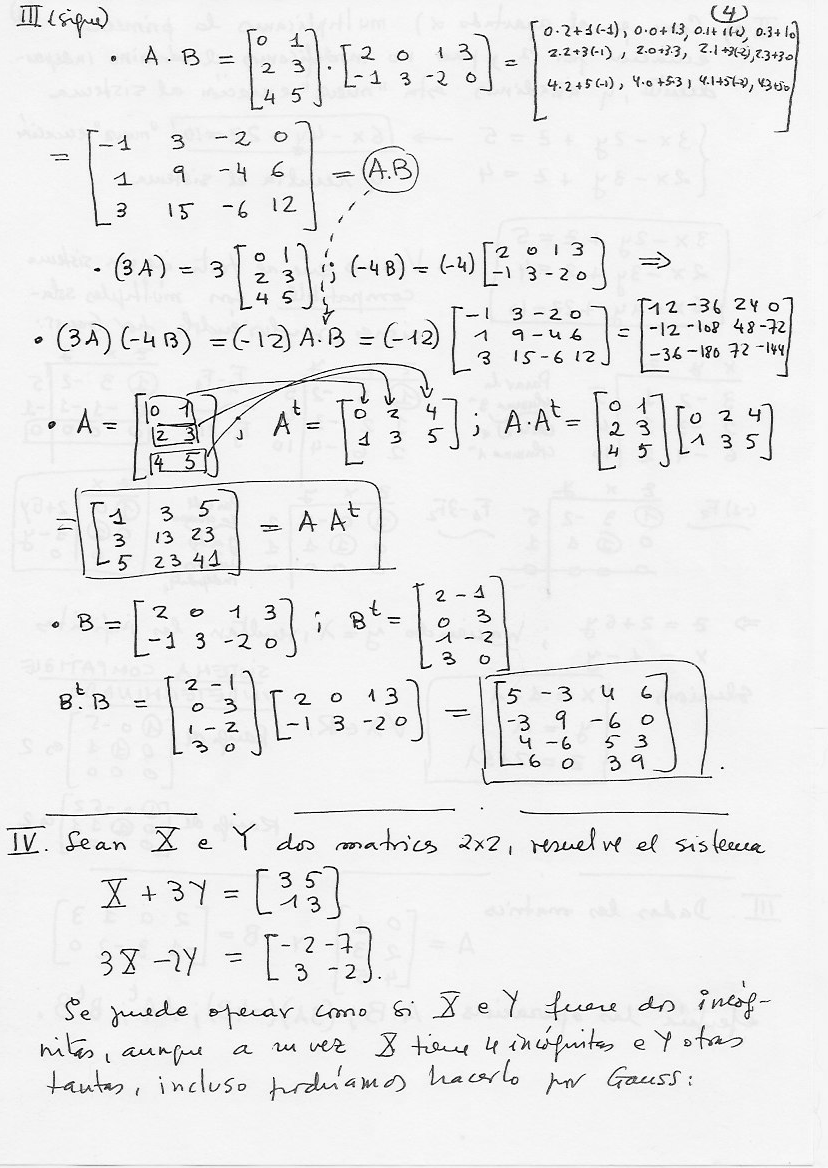 (4)
III (sigue)
• A·B = [0 1; 2 3; 4 5] · [2 0 1 3; -1 3 -2 0] = [0·2+1(-1), 0·0+1·3, 0·1+1(-2), 0·3+10; 2·2+3(-1), 2·0+3·3, 2·1+3(-2), 2·3+30; 4·2+5(-1), 4·0+5·3, 4·1+5(-2), 4·3+50]
= [-1 3 -2 0; 1 9 -4 6; 3 15 -6 12] = A.B
• (3A) = 3 [0 1; 2 3; 4 5] ; (-4B) = (-4) [2 0 1 3; -1 3 -2 0] ⇒
• (3A)(-4B) = (-12) A·B = (-12) [-1 3 -2 0; 1 9 -4 6; 3 15 -6 12] = [12 -36 24 0; -12 -108 48 -72; -36 -180 72 -144]
• A = [0 1; 2 3; 4 5] ; A^t = [0 2 4; 1 3 5] ; A·A^t = [0 1; 2 3; 4 5] [0 2 4; 1 3 5]
= [1 3 5; 3 13 23; 5 23 41] = A A^t
• B = [2 0 1 3; -1 3 -2 0] ; B^t = [2 -1; 0 3; 1 -2; 3 0]
B^t·B = [2 -1; 0 3; 1 -2; 3 0] [2 0 1 3; -1 3 -2 0] = [5 -3 4 6; -3 9 -6 0; 4 -6 5 3; 6 0 3 9].
IV. Sean X e Y dos matrices 2x2, resuelve el sistema
X + 3Y = [3 5; 1 3]
3X - 2Y = [-2 -7; 3 -2].
Se puede operar como si X e Y fuese dos incóg-
nitas, aunque a su vez X tiene 4 incógnitas e Y otras
tantas, incluso podríamos hacerlo por Gauss: